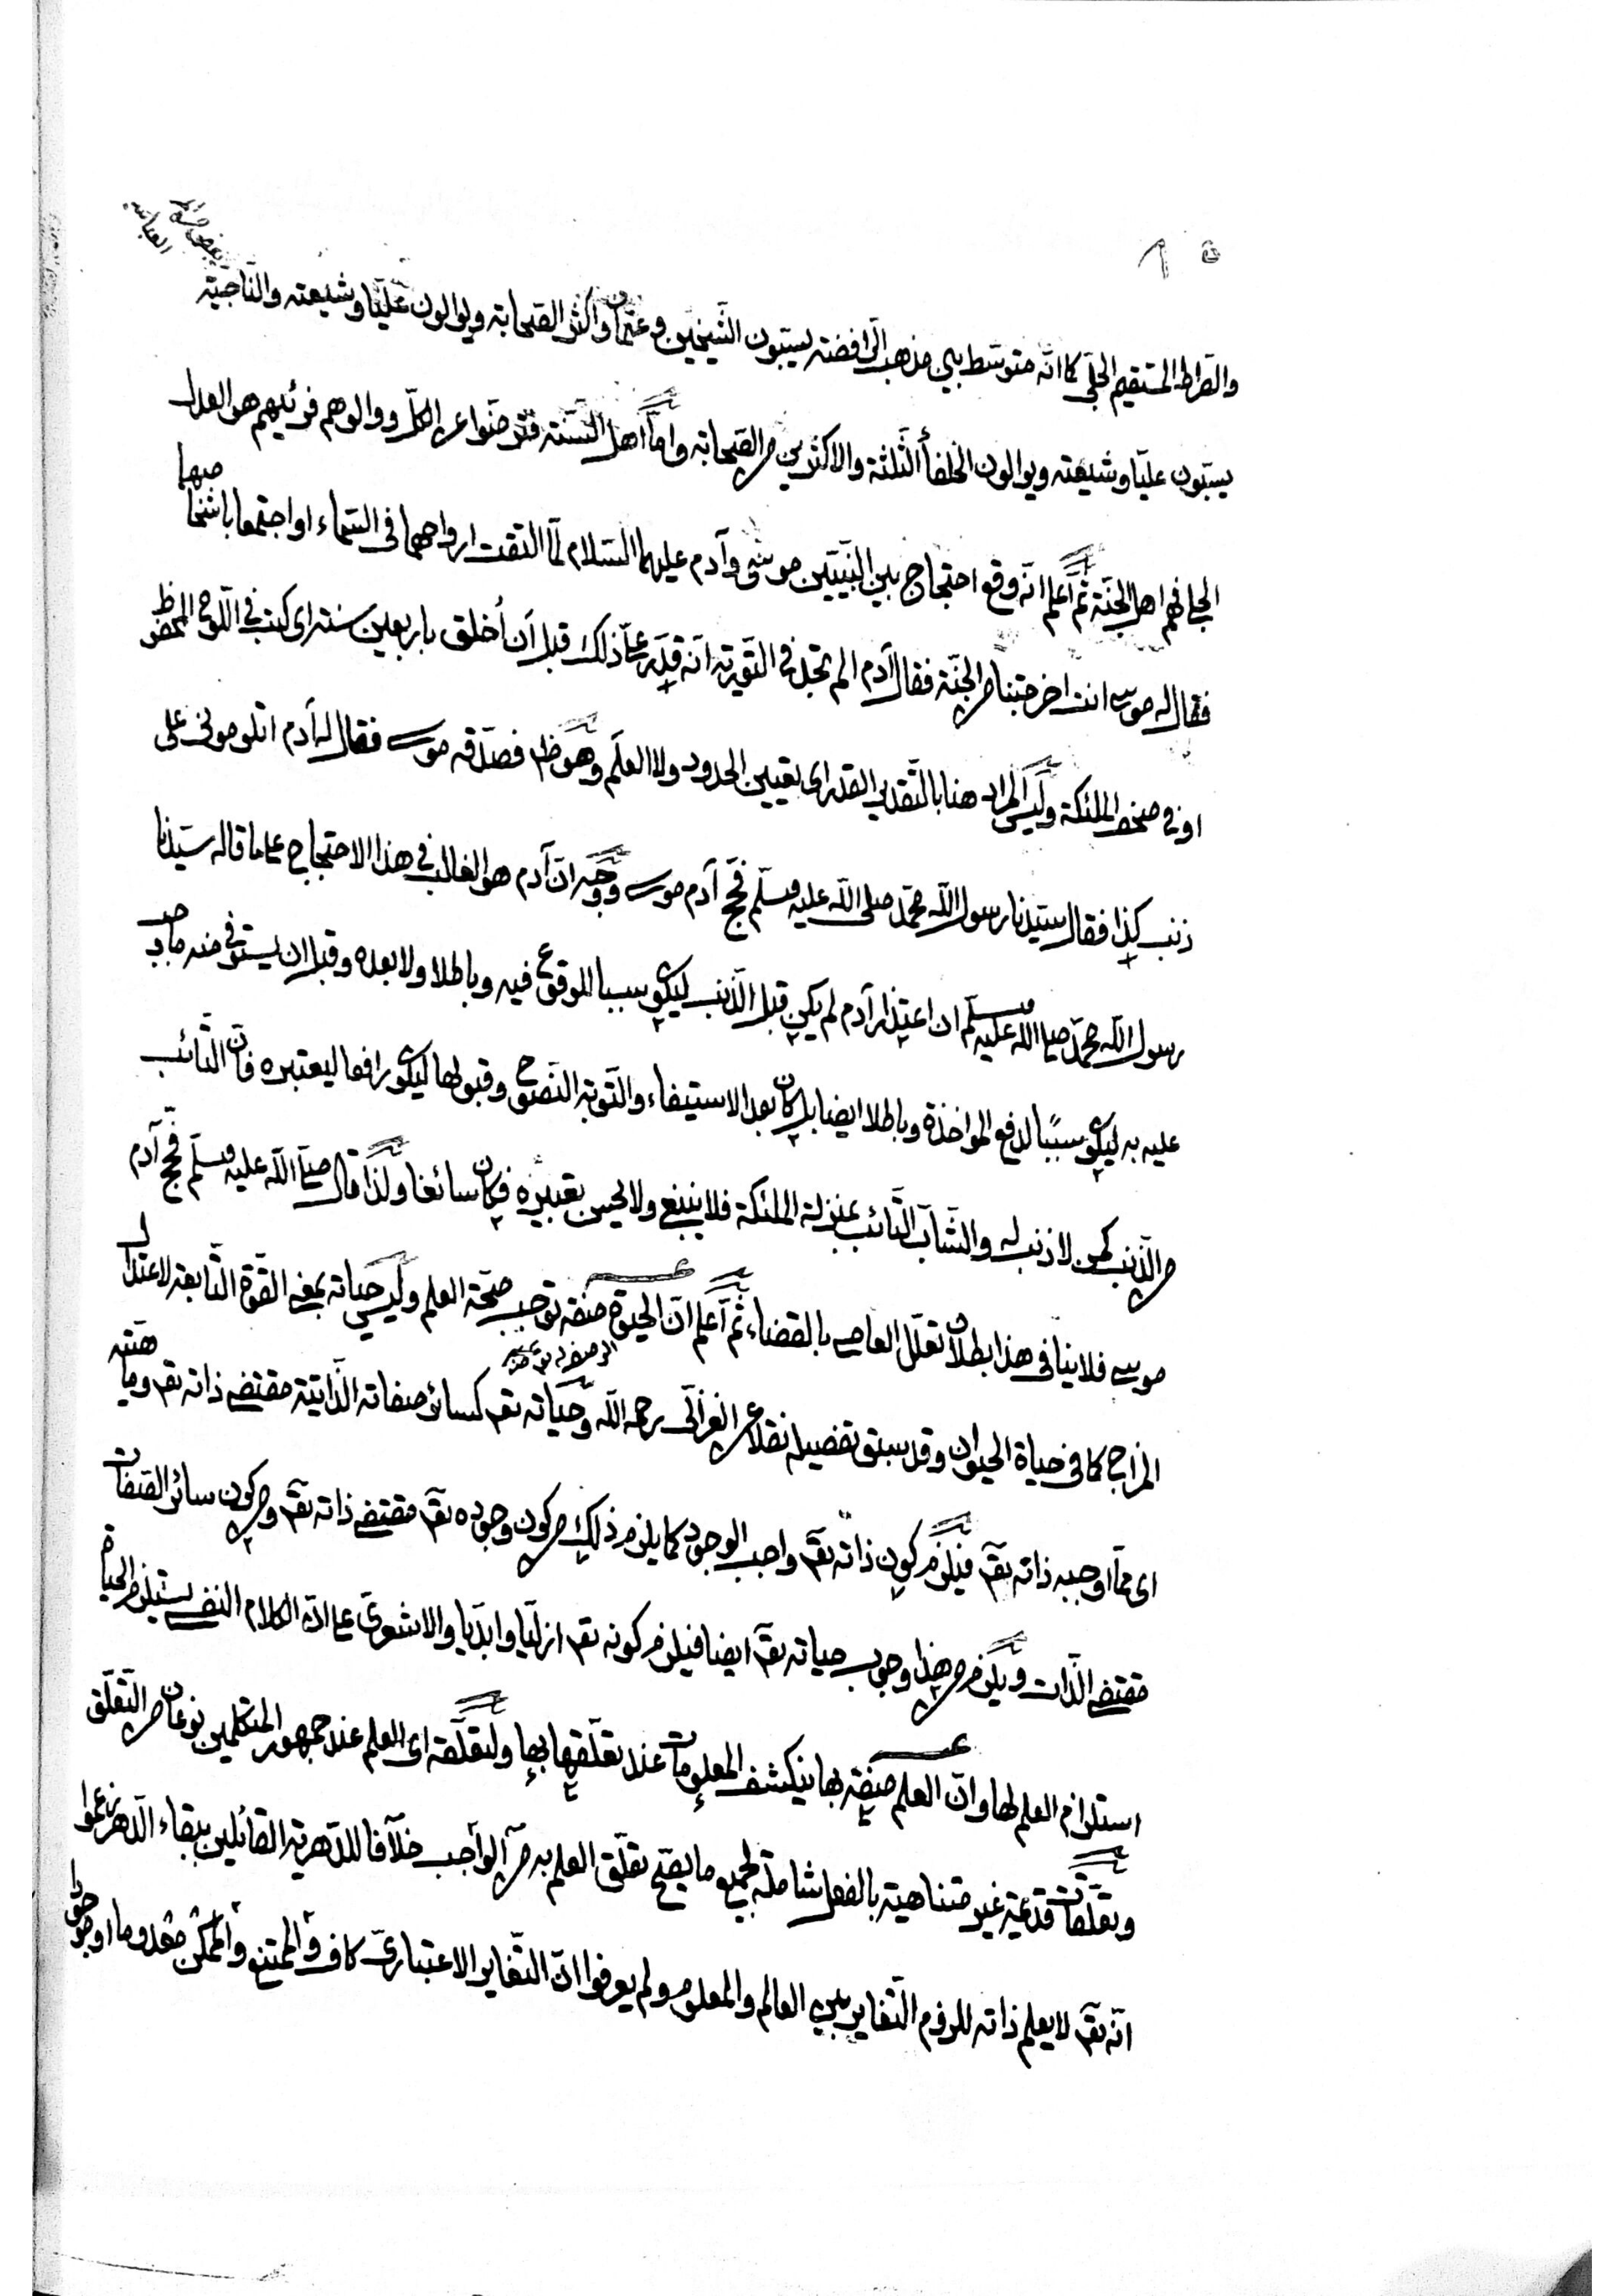 ١٥
والصراط المستقيم الجلى كما انه متوسط بين مذهب الرافضة يسبّون الشيخين وعثمان واكثر الصحابة ويوالون عليّا وشيعته والناصبيّة
يسبّون عليّا وشيعته ويوالون الخلفأ الثلثة والاكثرين من الصحابة واما اهل السّنة فترضّوا عن الكلّ ووالوهم فرئيهم هو العدل
فهم اهل الجنة ثم اعلم انّه وقع احتجاج بين النبيّين موسى وآدم عليهما السلام لمّا التقت ارواحهما فى السّماء او اجتمعا باشخاصهما
فقال له موسى انت اخرجتنا من الجنّة فقال آدم الم تجد فى التورية انه قدّر علىّ ذلك قبل أن أخلق باربعين سنة اى كتب فى اللّوح المحفوظ
او فى صحف الملئكة وليس المراد هنا بالتّقدير القدر اى تعيين الحدود ولا العلم وهو ظ فصدّقه موسى فقال له آدم اتلومونى على
ذنب كذا فقال سيّدنا رسول اللّه محمّد صلى اللّه عليه وسلّم فحجّ آدم موسى ووجه انّ آدم هو الغالب فى هذا الاحتجاج على ما قاله سيّدنا
رسول اللّه محمّد صلى اللّه عليه وسلّم ان اعتذار آدم لم يكن قبل الذّنب ليكون سببا للوقوع فيه وباطلا ولا بعده وقبل ان يستوفى منه ما يجب
عليه به ليكون سببًا لدفع المواخذة وباطلا ايضا بل كان بعد الاستيفاء والتّوبة النّصوح وقبولها ليكون رافعا ليعتبره فانّ التّائب
من الذّنب كمن لا ذنب له والشّابّ التّائب بمنزلة الملئكة فلا ينبغى ولا يحسن تعييره فكان سائغا ولذا قال صلّى اللّه عليه وسلّم فحجّ آدم
موسى فلا ينافى هذا بطلان تعلّل العاصى بالقضاء ثم اعلم انّ الحيوة صفة توجب صحّة العلم وليس حياته بمعنى القوّة التّابعة لاعتدال
المزاج كما فى حياة الحيوان وقد سبق تفصيله نقلا عن الغزالى رحمه اللّه وحياته تع كسائر صفاته الذّاتيّة مقتضى ذاته تع
اى ممّا اوجبه ذاته تع فيلزم كون ذاته تع واجب الوجود كما يلزم ذلك من كون وجوده تع مقتضى ذاته تع ومن كون سائر الصّفات
مقتضى الذّات ويلزم من هذا وجوب حياته تع ايضا فيلزم كونه تع ازليّا وابديّا والاشعرىّ على انّ الكلام النفسى يستلزم الحياة
استلزام العلم لها وانّ العلم صفة بها ينكشف المعلومات عند تعلّقها بها ولتعلّقه اى العلم عند جمهور المتكلمين نوعان من التّعلّق
وتعلّقات قديمة غير متناهية بالفعل شاملة لجميع ما يصحّ تعلّق العلم به من الواجب خلافا للدّهريّة القائلين ببقاء الدّهر زعموا
انّه تع لا يعلم ذاته للزوم التّغاير بين العالم والمعلوم ولم يعرفوا انّ التّغاير الاعتبارىّ كاف والممتنع والممكن معدوما او موجودا